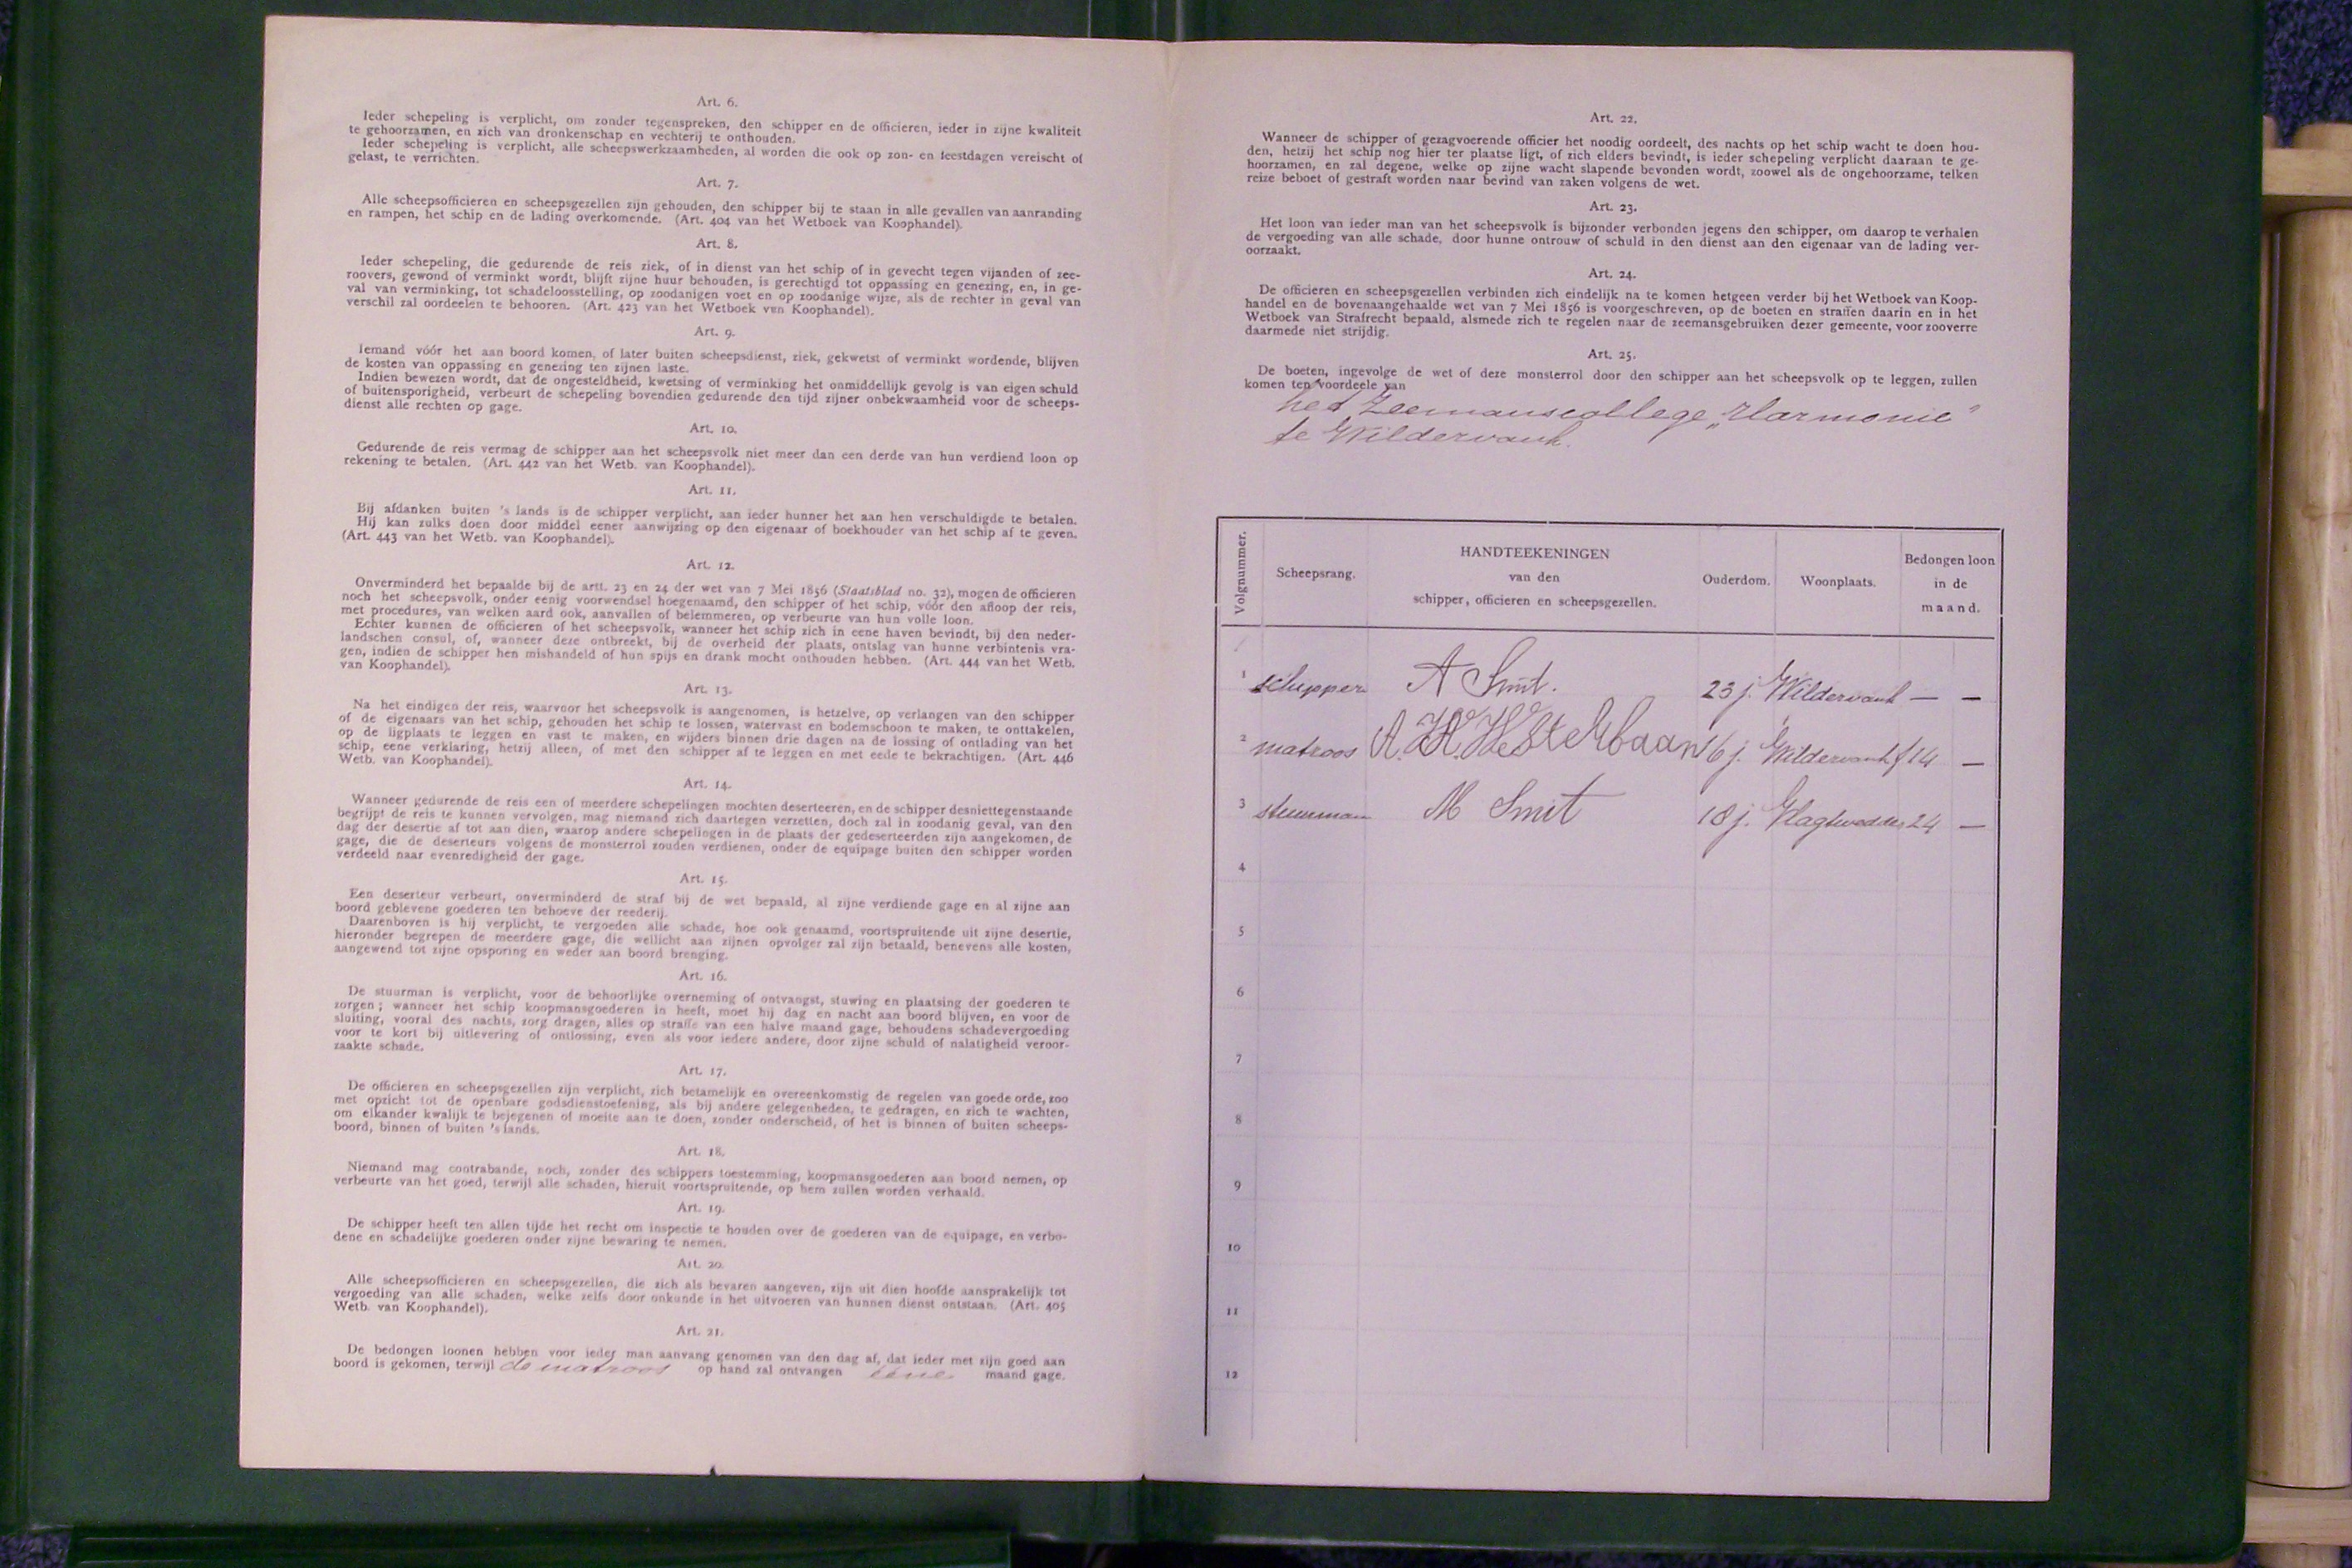 Art. 6.
Ieder schepeling is verplicht, om zonder tegenspreken, den schipper en de officieren, ieder in zijne kwaliteit
te gehoorzamen, en zich van dronkenschap en vechterij te onthouden.
Ieder schepeling is verplicht, alle scheepswerkzaamheden, al worden die ook op zon- en feestdagen vereischt of
gelast, te verrichten.
Art. 7.
Alle scheepsofficieren en scheepsgezellen zijn gehouden, den schipper bij te staan in alle gevallen van aanranding
en rampen, het schip en de lading overkomende. (Art. 404 van het Wetboek van Koophandel).
Art. 8.
Ieder schepeling, die gedurende de reis ziek, of in dienst van het schip of in gevecht tegen vijanden of zee-
roovers, gewond of verminkt wordt, blijft zijne huur behouden, is gerechtigd tot oppassing en genezing, en, in ge-
val van verminking, tot schadeloosstelling, op zoodanigen voet en op zoodanige wijze, als de rechter in geval van
verschil zal oordeelen te behooren. (Art. 423 van het Wetboek van Koophandel).
Art. 9.
Iemand vóór het aan boord komen, of later buiten scheepsdienst, ziek, gekwetst of verminkt wordende, blijven
de kosten van oppassing en genezing ten zijnen laste.
Indien bewezen wordt, dat de ongesteldheid, kwetsing of verminking het onmiddellijk gevolg is van eigen schuld
of buitensporigheid, verbeurt de schepeling bovendien gedurende den tijd zijner onbekwaamheid voor de scheeps-
dienst alle rechten op gage.
Art. 10.
Gedurende de reis vermag de schipper aan het scheepsvolk niet meer dan een derde van hun verdiend loon op
rekening te betalen. (Art. 442 van het Wetb. van Koophandel).
Art. 11.
Bij afdanken buiten 's lands is de schipper verplicht, aan ieder hunner het aan hen verschuldigde te betalen.
Hij kan zulks doen door middel eener aanwijzing op den eigenaar of boekhouder van het schip af te geven.
(Art. 443 van het Wetb. van Koophandel).
Art. 12.
Onverminderd het bepaalde bij de artt. 23 en 24 der wet van 7 Mei 1856 (Staatsblad no. 32), mogen de officieren
noch het scheepsvolk, onder eenig voorwendsel hoegenaamd, den schipper of het schip, vóór den afloop der reis,
met procedures, van welken aard ook, aanvallen of belemmeren, op verbeurte van hun volle loon.
Echter kunnen de officieren of het scheepsvolk, wanneer het schip zich in eene haven bevindt, bij den neder-
landschen consul, of, wanneer deze ontbreekt, bij de overheid der plaats, ontslag van hunne verbintenis vra-
gen, indien de schipper hen mishandeld of hun spijs en drank mocht onthouden hebben. (Art. 444 van het Wetb.
van Koophandel).
Art. 13.
Na het eindigen der reis, waarvoor het scheepsvolk is aangenomen, is hetzelve, op verlangen van den schipper
of de eigenaars van het schip, gehouden het schip te lossen, watervast en bodemschoon te maken, te onttakelen,
op de ligplaats te leggen en vast te maken, en wijders binnen drie dagen na de lossing of ontlading van het
schip, eene verklaring, hetzij alleen, of met den schipper af te leggen en met eede te bekrachtigen. (Art. 446
Wetb. van Koophandel).
Art. 14.
Wanneer gedurende de reis een of meerdere schepelingen mochten deserteeren, en de schipper desniettegenstaande
begrijpt de reis te kunnen vervolgen, mag niemand zich daartegen verzetten, doch zal in zoodanig geval, van den
dag der desertie af tot aan dien, waarop andere schepelingen in de plaats der gedeserteerden zijn aangekomen, de
gage, die de deserteurs volgens de monsterrol zouden verdienen, onder de equipage buiten den schipper worden
verdeeld naar evenredigheid der gage.
Art. 15.
Een deserteur verbeurt, onverminderd de straf bij de wet bepaald, al zijne verdiende gage en al zijne aan
boord geblevene goederen ten behoeve der reederij.
Daarenboven is hij verplicht, te vergoeden alle schade, hoe ook genaamd, voortspruitende uit zijne desertie,
hieronder begrepen de meerdere gage, die wellicht aan zijnen opvolger zal zijn betaald, benevens alle kosten,
aangewend tot zijne opsporing en weder aan boord brenging.
Art. 16.
De stuurman is verplicht, voor de behoorlijke overneming of ontvangst, stuwing en plaatsing der goederen te
zorgen; wanneer het schip koopmansgoederen in heeft, moet hij dag en nacht aan boord blijven, en voor de
sluiting, vooral des nachts, zorg dragen, alles op straffe van een halve maand gage, behoudens schadevergoeding
voor te kort bij uitlevering of ontlossing, even als voor iedere andere, door zijne schuld of nalatigheid veroor-
zaakte schade.
Art. 17.
De officieren en scheepsgezellen zijn verplicht, zich betamelijk en overeenkomstig de regelen van goede orde, zoo
met opzicht tot de openbare godsdienstoefening, als bij andere gelegenheden, te gedragen, en zich te wachten,
om elkander kwalijk te bejegenen of moeite aan te doen, zonder onderscheid, of het is binnen of buiten scheeps-
boord, binnen of buiten 's lands.
Art. 18.
Niemand mag contrabande, noch, zonder des schippers toestemming, koopmansgoederen aan boord nemen, op
verbeurte van het goed, terwijl alle schaden, hieruit voortspruitende, op hem zullen worden verhaald.
Art. 19.
De schipper heeft ten allen tijde het recht om inspectie te houden over de goederen van de equipage, en verbo-
dene en schadelijke goederen onder zijne bewaring te nemen.
Art. 20.
Alle scheepsofficieren en scheepsgezellen, die zich als bevaren aangeven, zijn uit dien hoofde aansprakelijk tot
vergoeding van alle schaden, welke zelfs door onkunde in het uitvoeren van hunnen dienst ontstaan. (Art. 405
Wetb. van Koophandel).
Art. 21.
De bedongen loonen hebben voor ieder man aanvang genomen van den dag af, dat ieder met zijn goed aan
boord is gekomen, terwijl de matroos op hand zal ontvangen eene maand gage.
Art. 22.
Wanneer de schipper of gezagvoerende officier het noodig oordeelt, des nachts op het schip wacht te doen hou-
den, hetzij het schip nog hier ter plaatse ligt, of zich elders bevindt, is ieder schepeling verplicht daaraan te ge-
hoorzamen, en zal degene, welke op zijne wacht slapende bevonden wordt, zoowel als de ongehoorzame, telken
reize beboet of gestraft worden naar bevind van zaken volgens de wet.
Art. 23.
Het loon van ieder man van het scheepsvolk is bijzonder verbonden jegens den schipper, om daarop te verhalen
de vergoeding van alle schade, door hunne ontrouw of schuld in den dienst aan den eigenaar van de lading ver-
oorzaakt.
Art. 24.
De officieren en scheepsgezellen verbinden zich eindelijk na te komen hetgeen verder bij het Wetboek van Koop-
handel en de bovenaangehaalde wet van 7 Mei 1856 is voorgeschreven, op de boeten en straffen daarin en in het
Wetboek van Strafrecht bepaald, alsmede zich te regelen naar de zeemansgebruiken dezer gemeente, voor zooverre
daarmede niet strijdig.
Art. 25.
De boeten, ingevolge de wet of deze monsterrol door den schipper aan het scheepsvolk op te leggen, zullen
komen ten voordeele van
het Zeemanscollege „Harmonie"
te Wildervank.
Volgnummer. Scheepsrang. HANDTEEKENINGEN van den schipper, officieren en scheepsgezellen. Ouderdom. Woonplaats. Bedongen loon in de maand.
1 schipper A Smit. 23 j. Wildervank — —
2 matroos A. H. Westerbaan 16 j. Wildervank f 14 —
3 stuurman M Smit 18 j. Vlagtwedde 24 —
4
5
6
7
8
9
10
11
12